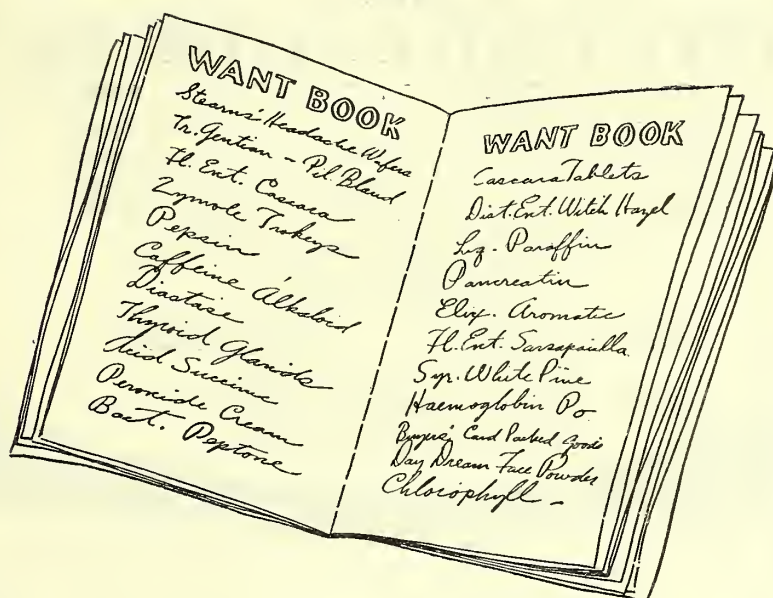 WANT BOOK
Stearns' Headache Wafers
Tr. Gentian - Pil. Blaud
Fl. Ext. Cascara
Zymole Trokeys
Pepsin
Caffeine Alkaloid
Diastase
Thyroid Glands
Acid Succinic
Peroxide Cream
Bact. Peptone
WANT BOOK
Cascara Tablets
Dist. Ext. Witch Hazel
Liq. Paraffin
Pancreatin
Elix. Aromatic
Fl. Ext. Sarsaparilla
Syr. White Pine
Haemoglobin Po
Buyers' Card Packed Goods
Day Dream Face Powder
Chlorophyll -